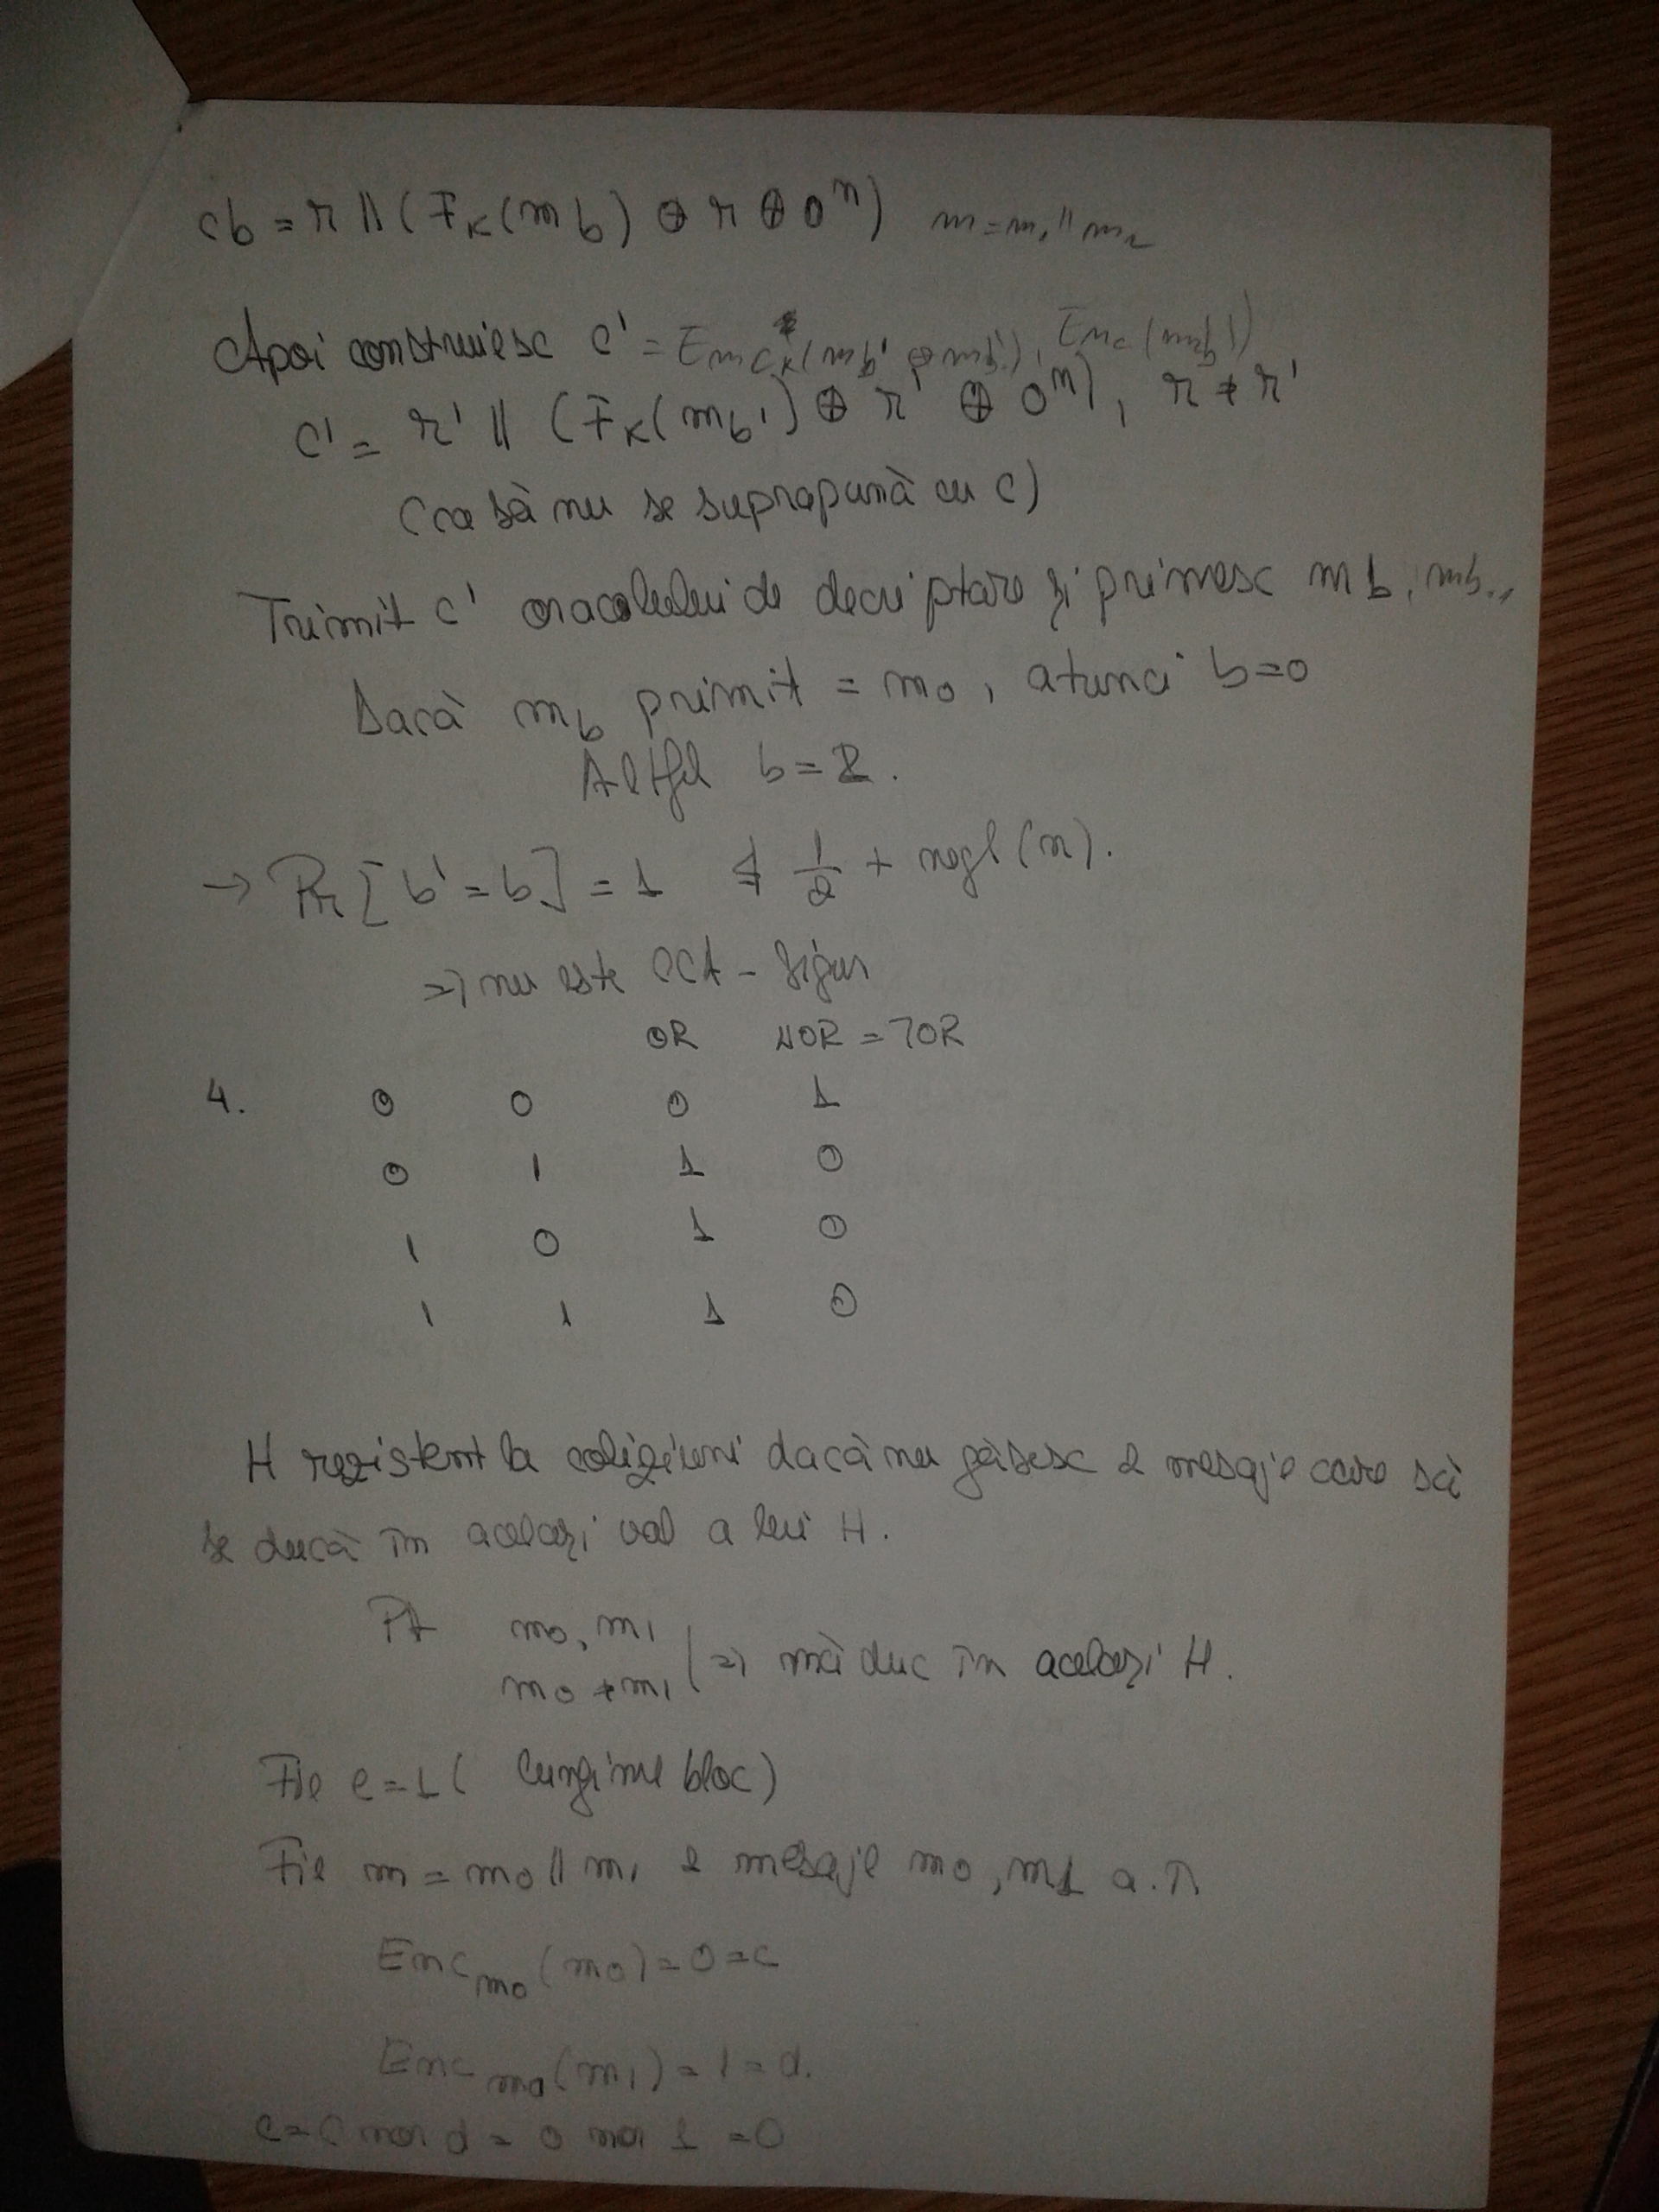 cb = r || (F_K(m_b) ⊕ r ⊕ 0^n) m = m_1 || m_2
Apoi construiesc c' =
c' = r' || (F_K(m_b') ⊕ r' ⊕ 0^n), r ≠ r'
(ca să nu se suprapună cu c)
Trimit c' oracolului de decriptare și primesc m_b,
Dacă m_b primit = m_0, atunci b=0
Altfel b=
→ Pr[b'=b] = 1 ≰ 1/2 + negl(n).
=> nu este CCA-sigur
OR NOR = ⌉OR
4. 0 0 0 1
0 1 1 0
1 0 1 0
1 1 1 0
H rezistent la coliziuni dacă nu găsesc 2 mesaje care să
se ducă în același val a lui H.
Pt m_0, m_1
m_0 ≠ m_1 => mă duc în același H.
Fie l=1 (lungime bloc)
Fie m = m_0 || m_1 2 mesaje m_0, m_1 a.î.
Enc_{m_0}(m_0) = 0 = c
Enc_{m_0}(m_1) = 1 = d.
nor d = 0 nor 1 = 0